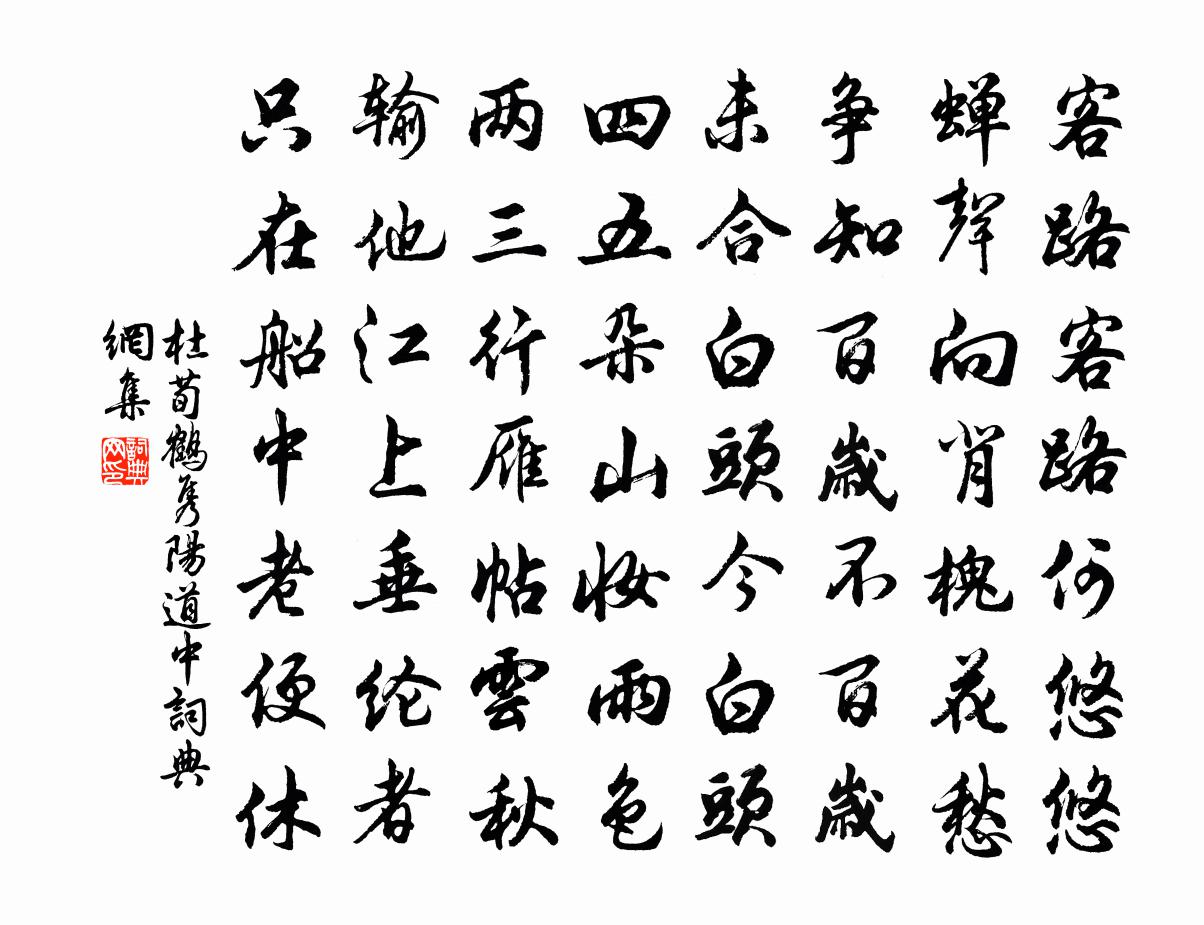 客路客路何悠悠
蝉聲向背槐花愁
争知百歲不百歲
未合白頭今白頭
四五朵山妆雨色
两三行雁帖雲秋
输他江上垂纶者
只在船中老便休
杜荀鶴隽陽道中詞典
網集
詞典
网印